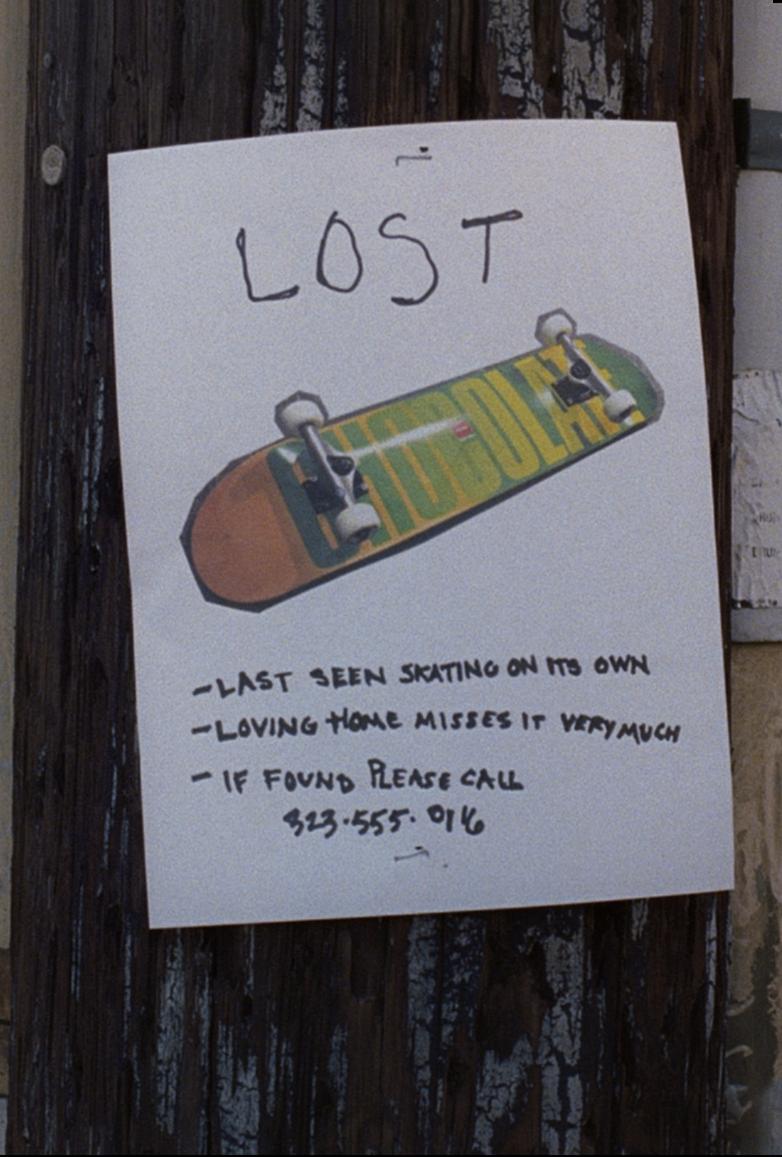 LOST
CHOCOLATE
-LAST SEEN SKATING ON ITS OWN
-LOVING HOME MISSES IT VERY MUCH
- IF FOUND PLEASE CALL
323.555.